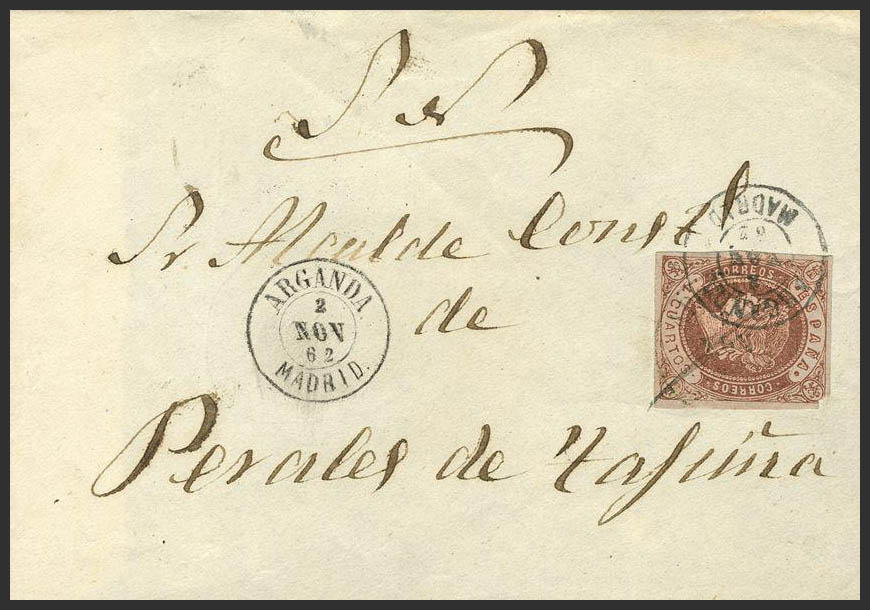 S. N.
Sr Alcalde Const.l
de
Perales de Tajuña
ARGANDA
2
NOV
62
MADRID.
MADRID
62
CORREOS
4 CUARTOS.
ESPAÑA.
CORREOS